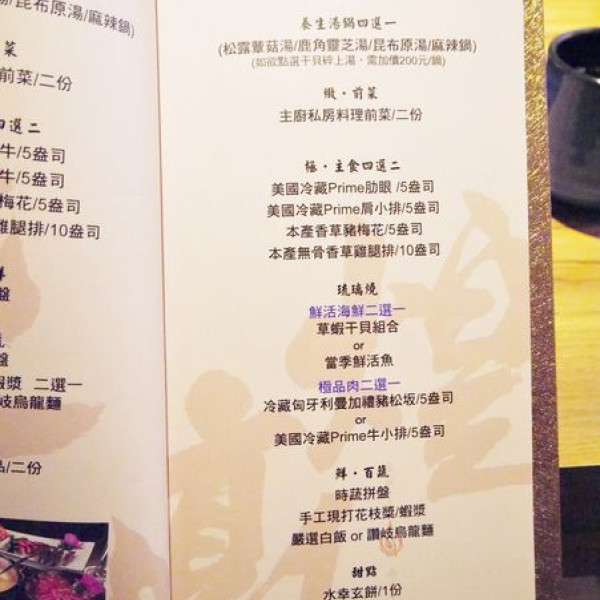 湯/昆布原湯/麻辣鍋)
菜
前菜/二份
四選二
牛/5盎司
牛/5盎司
梅花/5盎司
雞腿排/10盎司
鮮
盤
盤
蝦漿 二選一
岐烏龍麵
品/二份
養生湯鍋四選一
(松露蕈菇湯/鹿角靈芝湯/昆布原湯/麻辣鍋)
(如欲點選干貝碎上湯,需加價200元/鍋)
緻・前菜
主廚私房料理前菜/二份
極・主食四選二
美國冷藏Prime肋眼 /5盎司
美國冷藏Prime肩小排/5盎司
本產香草豬梅花/5盎司
本產無骨香草雞腿排/10盎司
琉璃燒
鮮活海鮮二選一
草蝦干貝組合
or
當季鮮活魚
極品肉二選一
冷藏匈牙利曼加禮豬松坂/5盎司
or
美國冷藏Prime牛小排/5盎司
鮮・百蔬
時蔬拼盤
手工現打花枝漿/蝦漿
嚴選白飯 or 讚岐烏龍麵
甜點
水幸玄餅/1份